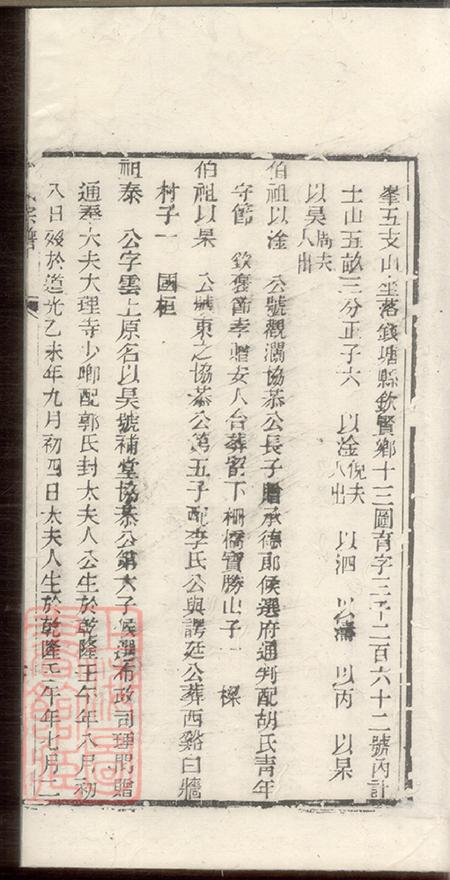 峯五支山坐落錢塘縣欽賢鄉十三圖育字三千二百六十二號內計
土山五畝三分正子六 以淦倪夫人出 以泗 以濤 以丙 以杲
以昊周夫人出
伯祖以淦 公號觀瀾協恭公長子贈承德郎候選府通判配胡氏青年
守節 欽褒節孝贈安人合葬留下柵橋寶勝山子一 樑
伯祖以杲 公號東之協恭公第五子配李氏公與諤廷公葬西谿白牆
村子一 國桓
祖泰 公字雲上原名以昊號補堂協恭公第六子候選布政司理問贈
通奉大夫大理寺少卿配郭氏封太夫人公生於乾隆壬午年八月初
八日歿於道光乙未年九月初四日太夫人生於乾隆壬午年七月二
氏宗譜